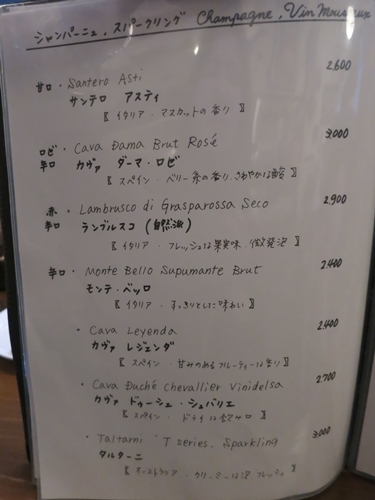 シャンパーニュ, スパークリング Champagne, Vin Mousseux
甘口・Santero Asti 2,600
サンテロ アスティ
〖 イタリア・マスカットの香り 〗
ロゼ・Cava Dama Brut Rosé 3,000
辛口 カヴァ ダーマ・ロゼ
〖 スペイン・ベリー系の香り、さわやかな酸 〗
赤・Lambrusco di Grasparossa Seco 2,900
辛口 ランブルスコ (自然派)
〖 イタリア・フレッシュな果実味、微発泡 〗
辛口・Monte Bello Supumante Brut 2,400
モンテ・ベッロ
〖 イタリア・すっきりとした味わい 〗
・Cava Leyenda 2,400
カヴァ レジェンダ
〖 スペイン・甘みのあるフルーティーな香り 〗
・Cava Duché Chevallier Vinidelsa 2,700
カヴァ ドゥーシェ・シュバリエ
〖 スペイン・ドライな飲み口 〗
・Taltarni T series. Sparkling 3,000
タルターニ
〖 オーストラリア・クリーミーな泡 フレッシュ 〗